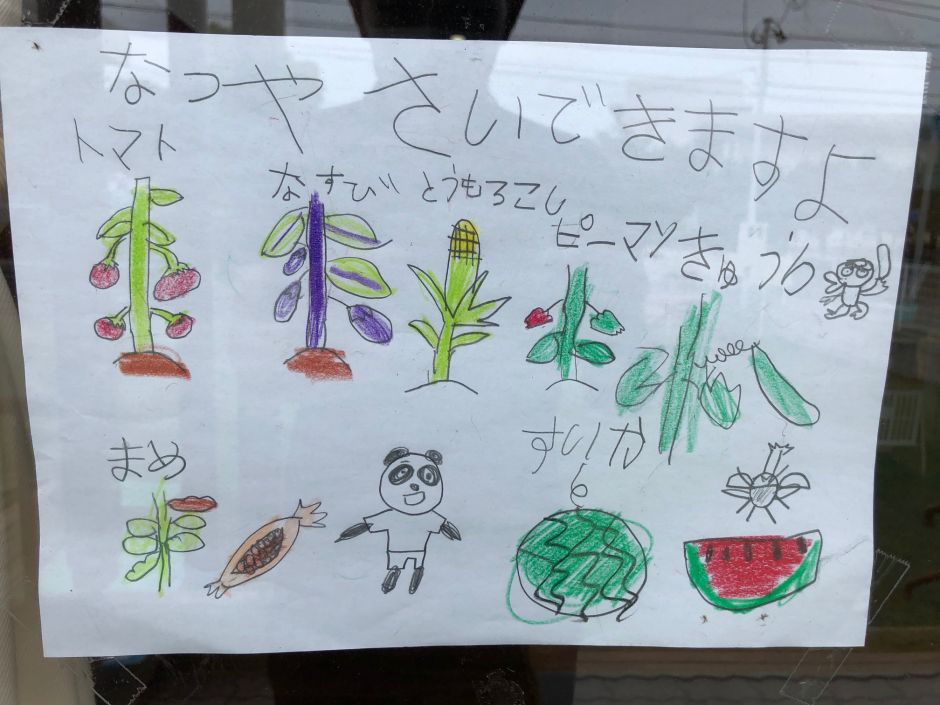 なつやさいできますよ
トマト
なすび
とうもろこし
ピーマン
きゅうり
まめ
すいか